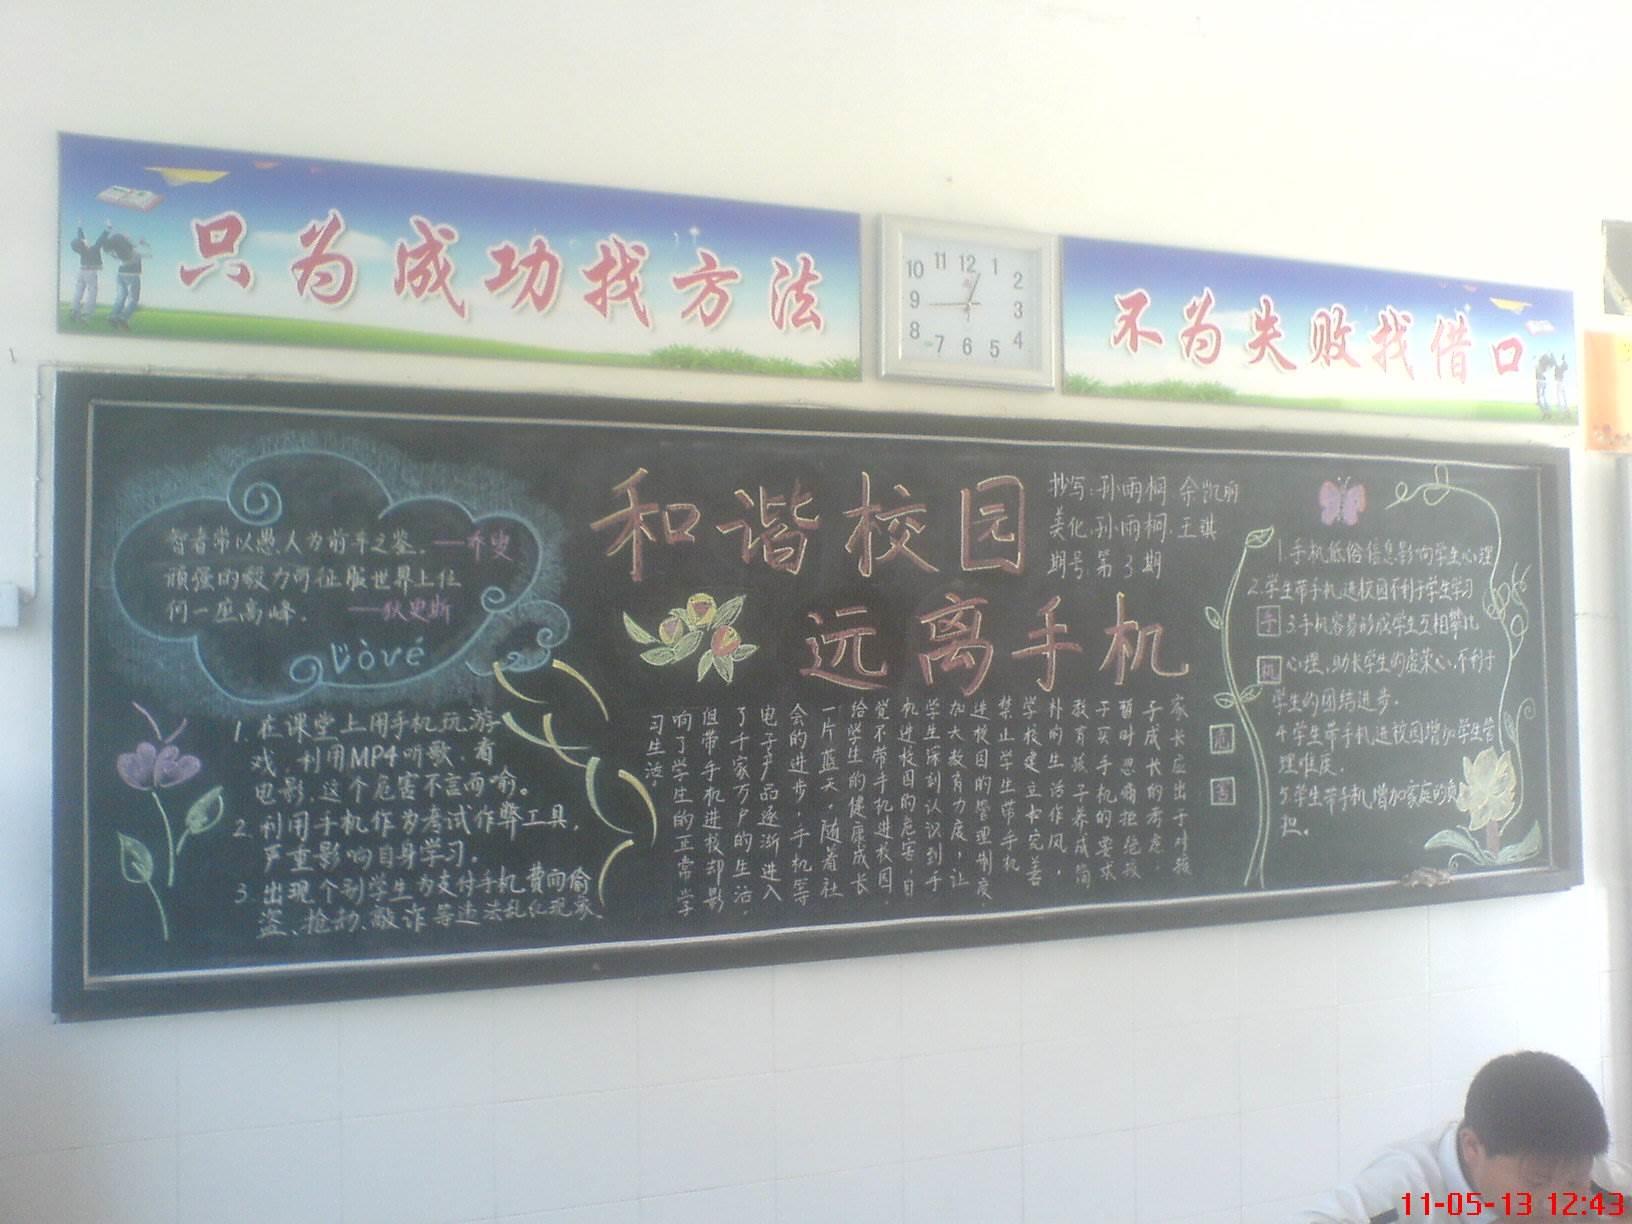 只为成功找方法
不为失败找借口
10 11 12 1 2
9 3
8 7 6 5 4
和谐校园
远离手机
抄写:孙雨桐 余凯丽
美化:孙雨桐.王琪
期号:第3期
智者常以愚人为前车之鉴.——乔叟
顽强的毅力可征服世界上任
何一座高峰. ——狄更斯
Love
1.在课堂上用手机玩游
戏,利用MP4听歌.看
电影.这个危害不言而喻。
2.利用手机作为考试作弊工具,
严重影响自身学习。
3.出现个别学生为支付手机费向偷
盗、抢劫、敲诈等违法乱纪现象.
家长应出于对孩
子成长的考虑,
暂时忍痛拒绝孩
子买手机的要求
教育孩子养成简
朴的生活作风,
学校建立和完善
禁止学生带手机
进校园的管理制度
加大教育力度,让
学生深刻认识到手
机进校园的危害,自
觉不带手机进校园,
给学生的健康成长
一片蓝天,随着社
会的进步,手机等
电子产品逐渐进入
了千家万户的生活,
但带手机进校却影
响了学生的正常学
习生活。
手
机
危
害
1.手机低俗信息影响学生心理
2.学生带手机进校园不利于学生学习
3.手机容易形成学生互相攀比
心理,助长学生的虚荣心,不利于
学生的团结进步.
4.学生带手机进校园增加学生管
理难度.
5.学生带手机,增加家庭的负
担.
11-05-13 12:43